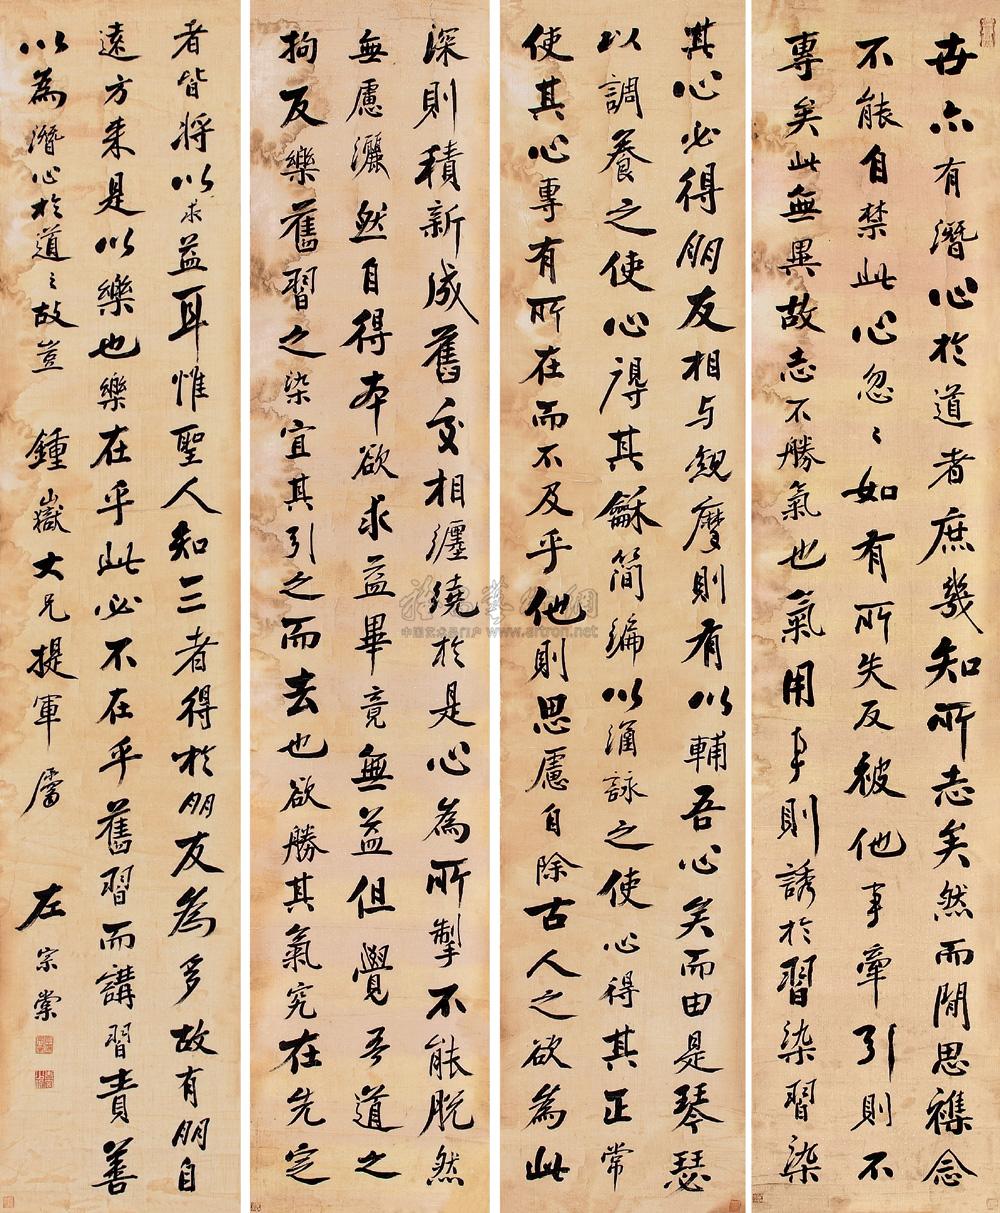 世亦有潛心於道者庶幾知所志矣然而閒思襍念
不能自禁此心忽〻如有所失反被他事牽引則不
專矣此無異故志不勝氣也氣用事則誘於習染習染
深則積新成舊交相纏繞於是心為所掣不能脫然
無慮灑然自得本欲求益畢竟無益但覺吾道之
拘反樂舊習之染宜其引之而去也欲勝其氣究在先定
其心必得朋友相与親摩則有以輔吾心矣而由是琴瑟
以調養之使心得其龢簡編以涵詠之使心得其正常
使其心專有所在而不及乎他則思慮自除古人之欲為此
者皆將以求益耳惟聖人知三者得於朋友為多故有朋自
遠方来是以樂也樂在乎此必不在乎舊習而講習責善
以為潛心於道之故豈 鍾嶽大兄提軍屬 左宗棠
中国艺术品门户 www.artron.net